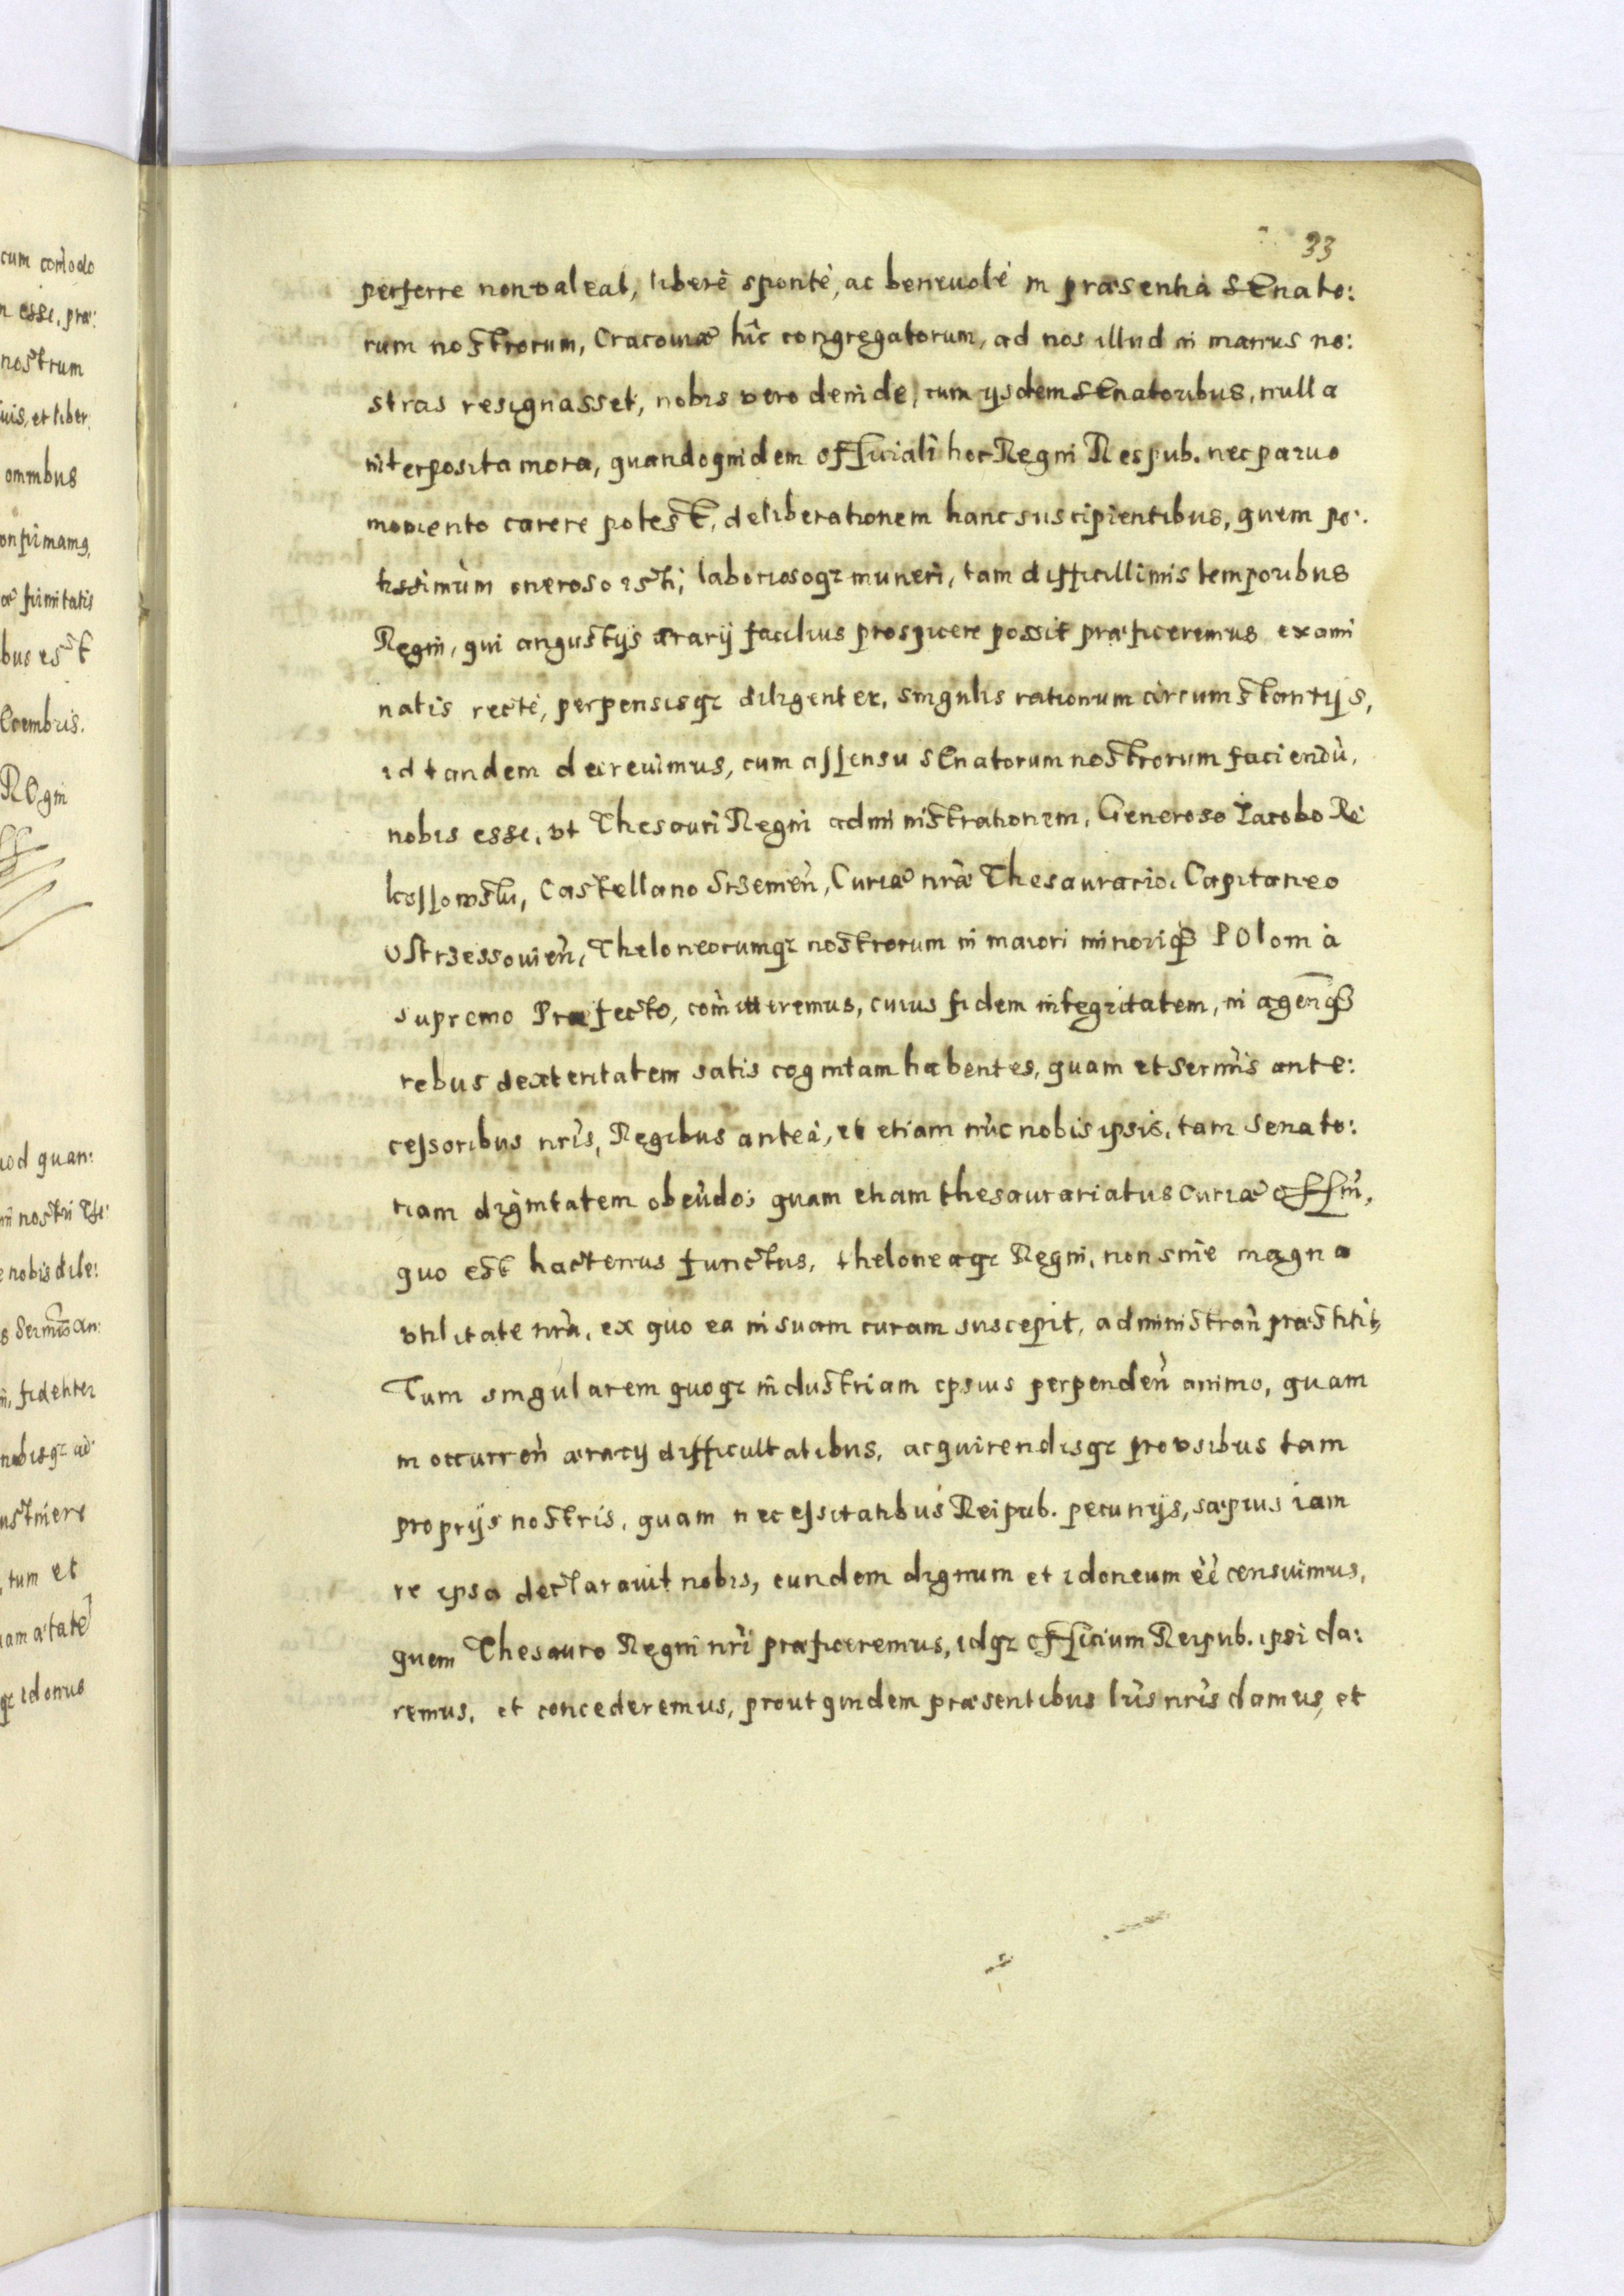 33
perferre non valeat, liberè spontè, ac beneuolè in præsentia Senato:
rum nostrorum, Cracouiæ hîc congregatorum, ad nos illud in manus no:
stras resignasset, nobis vero deinde, cum ijsdem Senatoribus, nulla
interposita mora, quandoquidem officiali hoc Regni Respub. nec paruo
momento carere potest, deliberationem hanc suscipientibus, quem po:
tissimùm oneroso isti, laboriosoq; muneri, tam difficillimis temporibus
Regni, qui angustijs ærarij facilius prospicere possit præficeremus exami
natis rectè, perpensisq; diligenter, singulis rationum circumstantijs,
id tandem decreuimus, cum assensu Senatorum nostrorum faciendũ,
nobis esse, vt Thesauri Regni administrationem, Generoso Iacobo Ro
kossowski, Castellano Srzemeñ, Curiæ nrã Thesaurario, Capitaneo
Ostrzessouieñ, Theloneorumq; nostrorum in maiori minoriq; Polonia
supremo Præfecto, com̃itteremus, cuius fidem integritatem, in agendisq;
rebus dexteritatem satis cognitam habentes, quam et Serm̃is ante:
cessoribus nrĩs, Regibus anteà, et etiam nũc nobis ipsis, tam Senato:
riam dignitatem obeũdo; quam etiam thesaurariatus Curiæ offm̃,
quo est hactenus functus, theloneaq; Regni, non sine magna
vtilitate nrã, ex quo ea in suam curam suscepit, administrañ præstitit,
Tum singularem quoq; industriam ipsius perpendeñ animo, quam
in occurreñ ærarij difficultatibus, acquirendisq; pro vsibus tam
proprijs nostris, quam necessitatibus Reipub. pecunijs, sæpius iam
re ipsa declarauit nobis, eundem dignum et idoneum eẽ censuimus,
quem Thesauro Regni nrĩ præficeremus, idq; officium Reipub. ipsi da:
remus, et concederemus, prout quidem præsentibus lrĩs nrĩs damus, et